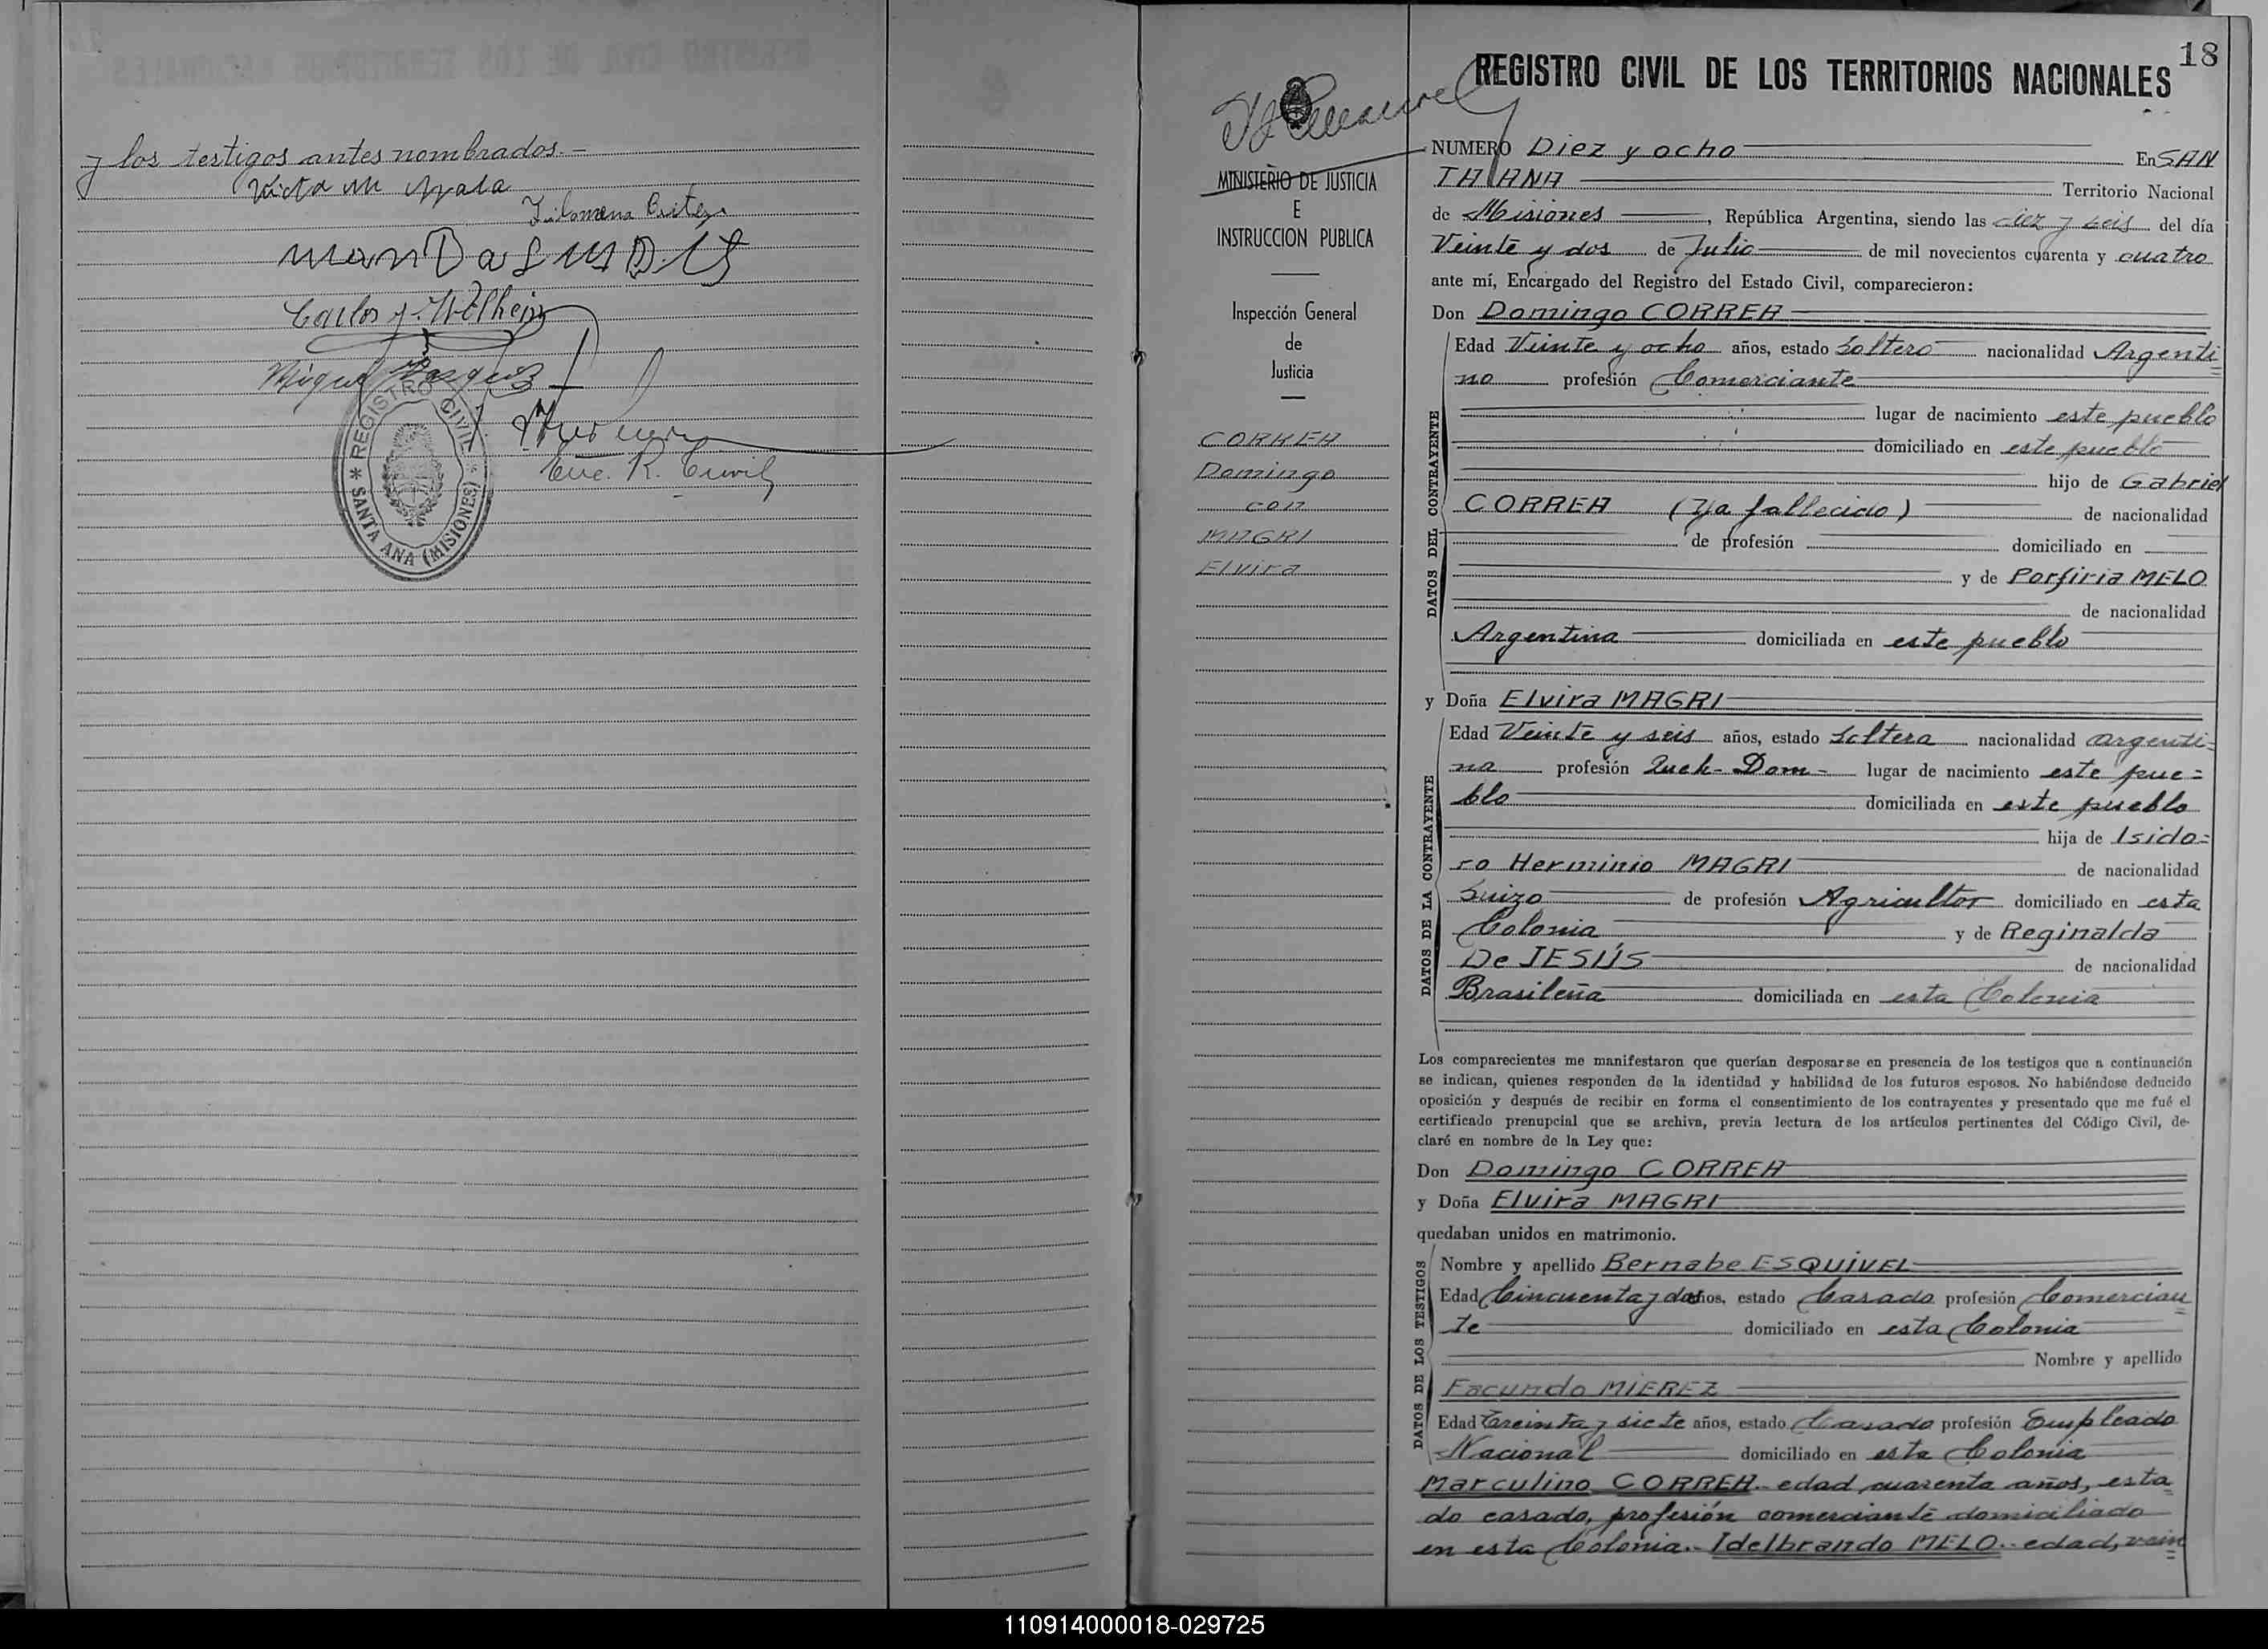 y los testigos antes nombrados.-
Filomena Britez
Carlos J. Wilhein
Miguel Vazquez
Enc. R. Civil
* REGISTRO CIVIL * SANTA ANA (MISIONES)
18
MINISTERIO DE JUSTICIA
E
INSTRUCCION PUBLICA
Inspección General
de
Justicia
CORREA
Domingo
con
MAGRI
Elvira
REGISTRO CIVIL DE LOS TERRITORIOS NACIONALES
NUMERO Diez y ocho En SAN
TA ANA Territorio Nacional
de Misiones, República Argentina, siendo las diez y seis del día
Veinte y dos de Julio de mil novecientos cuarenta y cuatro
ante mí, Encargado del Registro del Estado Civil, comparecieron:
Don Domingo CORREA
DATOS DEL CONTRAYENTE
Edad Veinte y ocho años, estado Soltero nacionalidad Argenti=
no profesión Comerciante
lugar de nacimiento este pueblo
domiciliado en este pueblo
hijo de Gabriel
CORREA (Ya fallecido) de nacionalidad
de profesión domiciliado en
y de Porfiria MELO
de nacionalidad
Argentina domiciliada en este pueblo
y Doña Elvira MAGRI
DATOS DE LA CONTRAYENTE
Edad Veinte y seis años, estado Soltera nacionalidad argenti=
na profesión Queh- Dom- lugar de nacimiento este pue=
blo domiciliada en este pueblo
hija de Isido=
ro Herminio MAGRI de nacionalidad
Suizo de profesión Agricultor domiciliado en esta
Colonia y de Reginalda
De JESÚS de nacionalidad
Brasileña domiciliada en esta Colonia
Los comparecientes me manifestaron que querían desposarse en presencia de los testigos que a continuación
se indican, quienes responden de la identidad y habilidad de los futuros esposos. No habiéndose deducido
oposición y después de recibir en forma el consentimiento de los contrayentes y presentado que me fué el
certificado prenupcial que se archiva, previa lectura de los artículos pertinentes del Código Civil, de-
claré en nombre de la Ley que:
Don Domingo CORREA
y Doña Elvira MAGRI
quedaban unidos en matrimonio.
DATOS DE LOS TESTIGOS
Nombre y apellido Bernabe ESQUIVEL
Edad Cincuenta y dos años, estado Casado profesión Comercian=
te domiciliado en esta Colonia
Nombre y apellido
Facundo MIEREZ
Edad Treinta y siete años, estado Casado profesión Empleado
Nacional domiciliado en esta Colonia
Marculino CORREA.- edad, cuarenta años, esta=
do casado, profesión comerciante domiciliado
en esta Colonia.- Idelbrando MELO.- edad, vein=
110914000018-029725